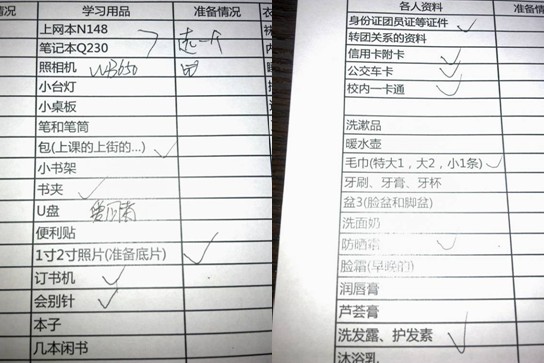 情况 学习用品 准备情况 衣
上网本N148 选一个
笔记本Q230
照相机 WB650
小台灯
小桌板
笔和笔筒
包(上课的上街的...)
小书架
书夹
U盘
便利贴
1寸2寸照片(准备底片)
订书机
会别针
本子
几本闲书
各人资料 准备情
身份证团员证等证件
转团关系的资料
信用卡附卡
公交车卡
校内一卡通
洗漱品
暖水壶
毛巾(特大1，大2，小1条)
牙刷、牙膏、牙杯
盆3(脸盆和脚盆)
洗面奶
防晒霜
脸霜(早晚的)
润唇膏
芦荟膏
洗发露、护发素
沐浴乳